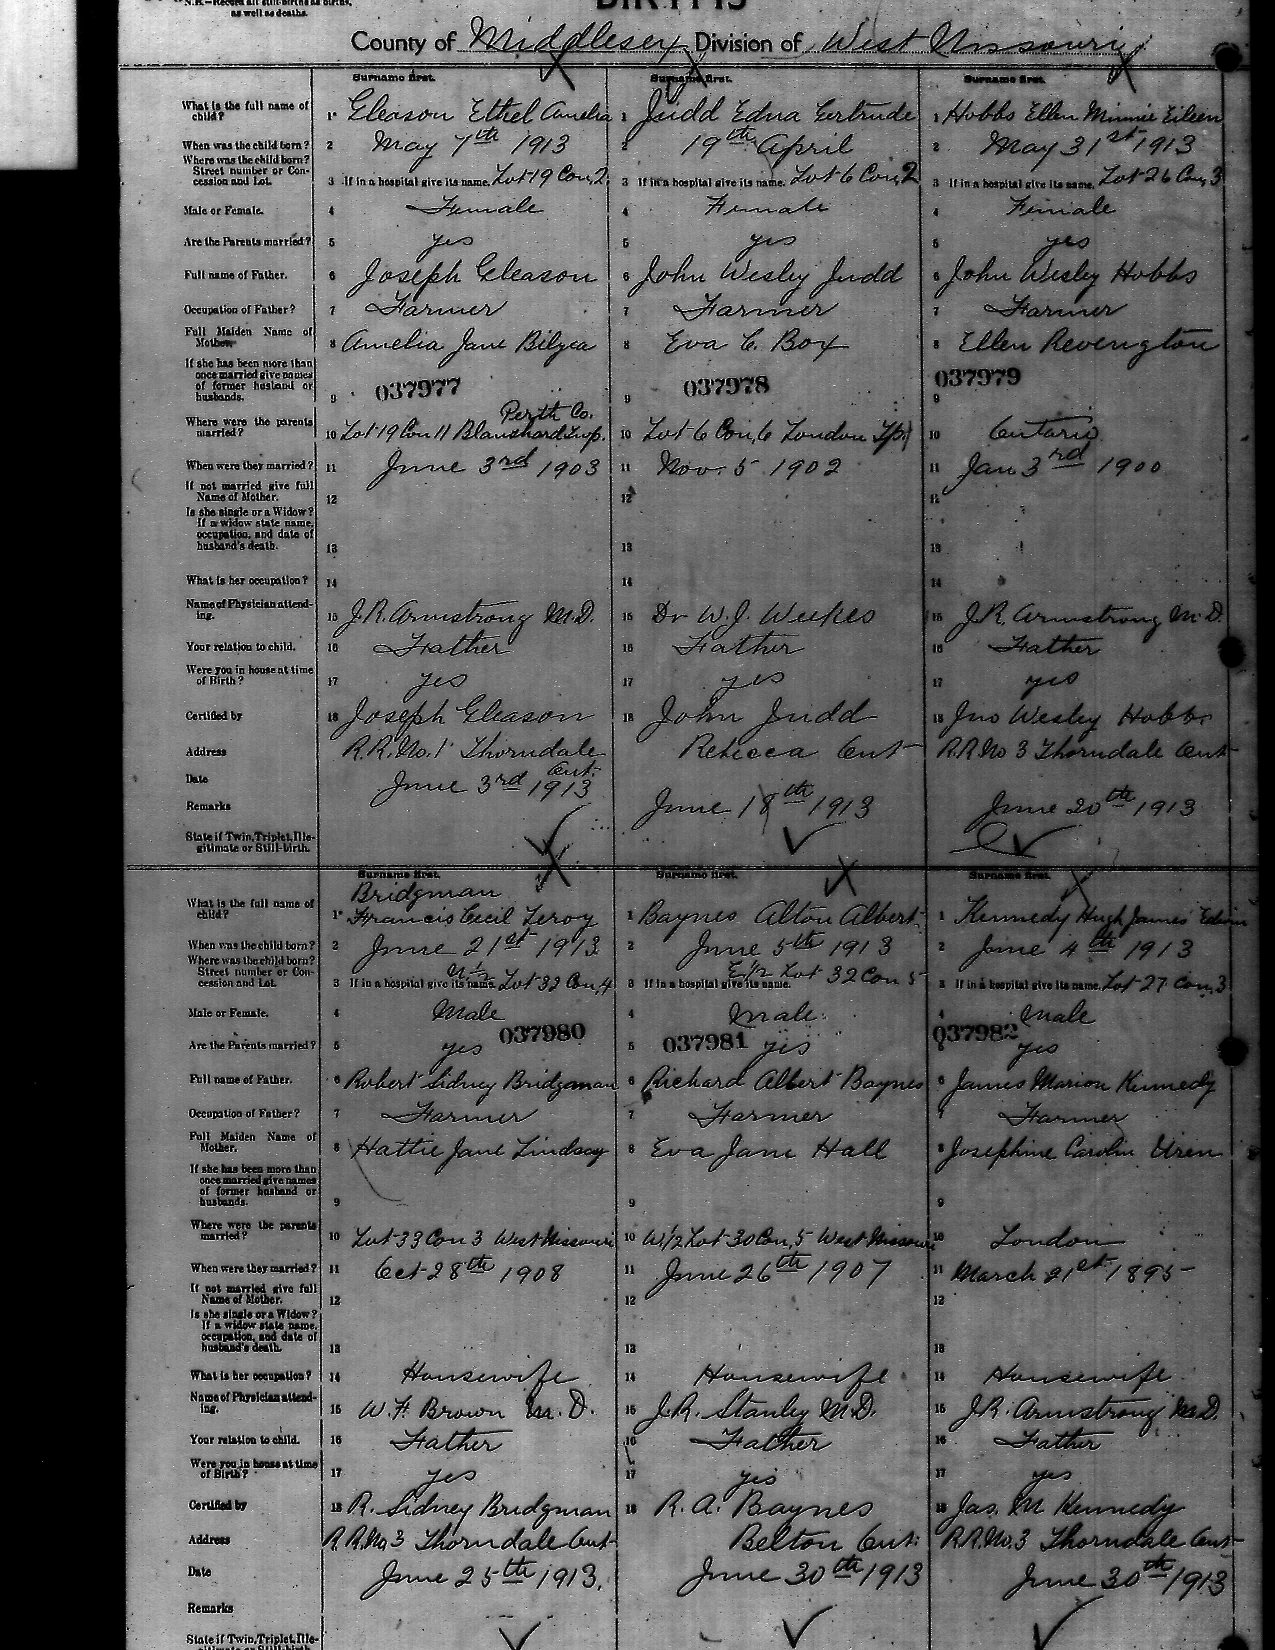 N.B.—Record all still-births as births,
as well as deaths.
BIRTHS
County of Middlesex Division of West Nissouri
Surname first. Surname first. Surname first.
What is the full name of child? 1 Gleason Ethel Amelia 1 Judd Edna Gertrude 1 Hobbs Ellen Minnie Eileen
When was the child born? 2 May 7th 1913 2 19th April 2 May 31st 1913
Where was the child born? Street number or Concession and Lot. 3 If in a hospital give its name. Lot 19 Con 2 3 If in a hospital give its name. Lot 6 Con 2 3 If in a hospital give its name. Lot 26 Con 3
Male or Female. 4 Female 4 Female 4 Female
Are the Parents married? 5 yes 5 yes 5 yes
Full name of Father. 6 Joseph Gleason 6 John Wesley Judd 6 John Wesley Hobbs
Occupation of Father? 7 Farmer 7 Farmer 7 Farmer
Full Maiden Name of Mother. 8 Amelia Jane 8 Eva C. Box 8 Ellen Revington
If she has been more than once married give names of former husband or husbands. 9 037977 9 037978 9 037979
Where were the parents married? 10 Lot 19 Con 11 Blanshard Twp. Perth Co. 10 Lot 6 Con 6 London Tp. 10 Ontario
When were they married? 11 June 3rd 1903 11 Nov. 5 1902 11 Jan 3rd 1900
If not married give full Name of Mother. 12 12 12
Is she single or a Widow? If a widow state name, occupation, and date of husband's death. 13 13 13
What is her occupation? 14 14 14
Name of Physician attending. 15 J.R. Armstrong M.D. 15 Dr W.J. Weekes 15 J.R. Armstrong M.D.
Your relation to child. 16 Father 16 Father 16 Father
Were you in house at time of Birth? 17 yes 17 yes 17 yes
Certified by 18 Joseph Gleason 18 John Judd 18 Jno Wesley Hobbs
Address R.R. No. 1 Thorndale Ont. Rebecca Ont R.R. No 3 Thorndale Ont
Date June 3rd 1913 June 18th 1913 June 20th 1913
Remarks
State if Twin, Triplet, Illegitimate or Still-birth.
Surname first. Surname first. Surname first.
What is the full name of child? 1 Bridgman Francis Cecil Leroy 1 Baynes Alton Albert 1 Kennedy Hugh James Edwin
When was the child born? 2 June 21st 1913 2 June 5th 1913 2 June 4th 1913
Where was the child born? Street number or Concession and Lot. 3 If in a hospital give its name. N½ Lot 32 Con 4 3 If in a hospital give its name. E½ Lot 32 Con 5 3 If in a hospital give its name. Lot 27 Con 3
Male or Female. 4 Male 4 Male 4 Male
037980 037981 037982
Are the Parents married? 5 yes 5 yes 5 yes
Full name of Father. 6 Robert Sidney Bridgman 6 Richard Albert Baynes 6 James Marion Kennedy
Occupation of Father? 7 Farmer 7 Farmer 7 Farmer
Full Maiden Name of Mother. 8 Hattie Jane Lindsay 8 Eva Jane Hall 8 Josephine Carolin Uren
If she has been more than once married give names of former husband or husbands. 9 9 9
Where were the parents married? 10 Lot 33 Con 3 West Nissouri 10 W1/2 Lot 30 Con, 5 West Nissouri 10 London
When were they married? 11 Oct 28th 1908 11 June 26th 1907 11 March 21st 1895
If not married give full Name of Mother. 12 12 12
Is she single or a Widow? If a widow state name, occupation, and date of husband's death. 13 13 13
What is her occupation? 14 Housewife 14 Housewife 14 Housewife
Name of Physician attending. 15 W.F. Brown M.D. 15 J.R. Stanley M.D. 15 J.R. Armstrong M.D.
Your relation to child. 16 Father 16 Father 16 Father
Were you in house at time of Birth? 17 yes 17 yes 17 yes
Certified by 18 R. Sidney Bridgman 18 R. A. Baynes 18 Jas. M Kennedy
Address R.R. No 3 Thorndale Ont Belton Ont. R.R. No. 3 Thorndale Ont
Date June 25th 1913. June 30th 1913 June 30th 1913
Remarks
State if Twin, Triplet, Ille-